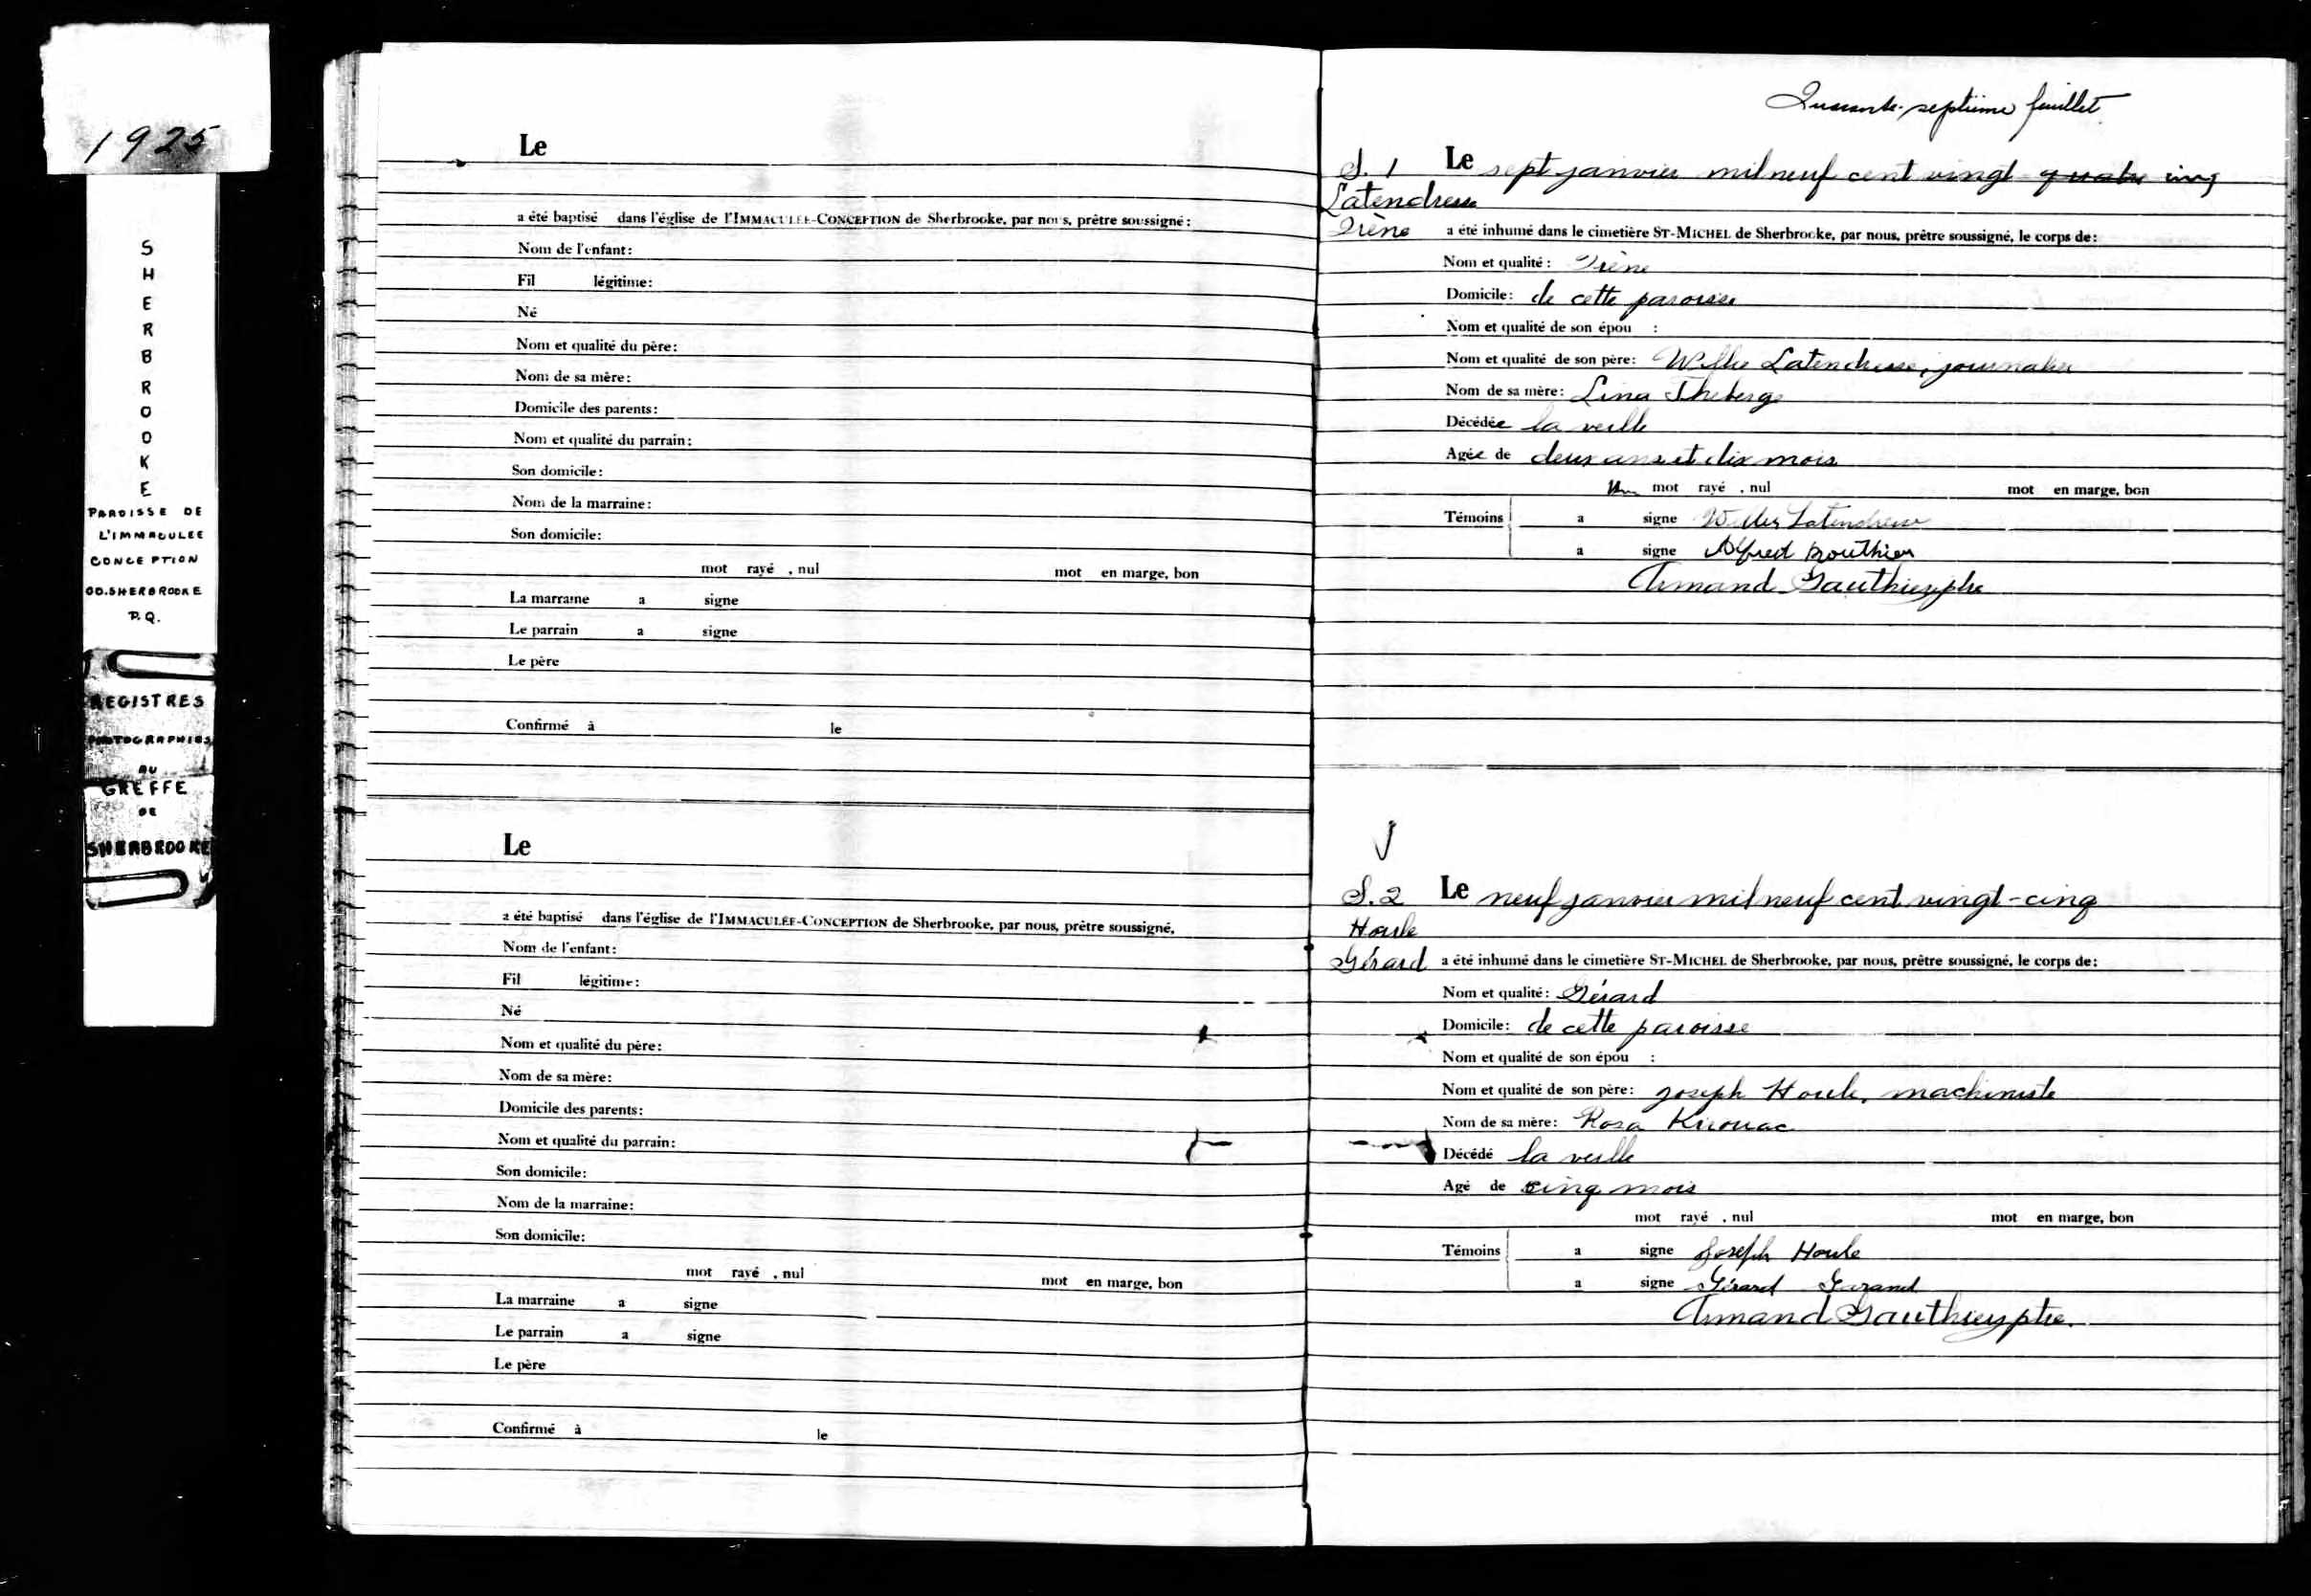 1925
S
H
E
R
B
R
O
O
K
E
PAROISSE DE
L'IMMACULEE
CONCEPTION
CO.SHERBROOKE
P.Q.
REGISTRES
PHOTOGRAPHIES
AU
GREFFE
DE
SHERBROOKE
Le
a été baptisé dans l'église de l'IMMACULÉE-CONCEPTION de Sherbrooke, par nous, prêtre soussigné:
Nom de l'enfant:
Fil légitime:
Né
Nom et qualité du père:
Nom de sa mère:
Domicile des parents:
Nom et qualité du parrain:
Son domicile:
Nom de la marraine:
Son domicile:
mot rayé , nul mot en marge, bon
La marraine a signe
Le parrain a signe
Le père
Confirmé à le
Le
a été baptisé dans l'église de l'IMMACULÉE-CONCEPTION de Sherbrooke, par nous, prêtre soussigné,
Nom de l'enfant:
Fil légitime:
Né
Nom et qualité du père:
Nom de sa mère:
Domicile des parents:
Nom et qualité du parrain:
Son domicile:
Nom de la marraine:
Son domicile:
mot rayé , nul mot en marge, bon
La marraine a signe
Le parrain a signe
Le père
Confirmé à le
Quarante-septième feuillet
S. 1 Le sept janvier mil neuf cent vingt quatre cinq
Latendresse
Irène a été inhumé dans le cimetière ST-MICHEL de Sherbrooke, par nous, prêtre soussigné, le corps de:
Nom et qualité: Irène
Domicile: de cette paroisse
Nom et qualité de son épou :
Nom et qualité de son père: Willie Latendresse, journalier
Nom de sa mère: Lina Theberge
Décédée la veille
Agée de deux ans et dix mois
Un mot rayé , nul mot en marge, bon
Témoins a signe Latendresse
a signe Alfred Routhier
Armand Gauthier, ptre
S. 2 Le neuf janvier mil neuf cent vingt-cinq
Houle
Gérard a été inhumé dans le cimetière ST-MICHEL de Sherbrooke, par nous, prêtre soussigné, le corps de:
Nom et qualité: Gérard
Domicile: de cette paroisse
Nom et qualité de son épou :
Nom et qualité de son père: Joseph Houle, machiniste
Nom de sa mère: Rosa Kirouac
Décédé la veille
Agé de cinq mois
mot rayé , nul mot en marge, bon
Témoins a signe Joseph Houle
a signe Gérard Garand
Armand Gauthier, ptre.